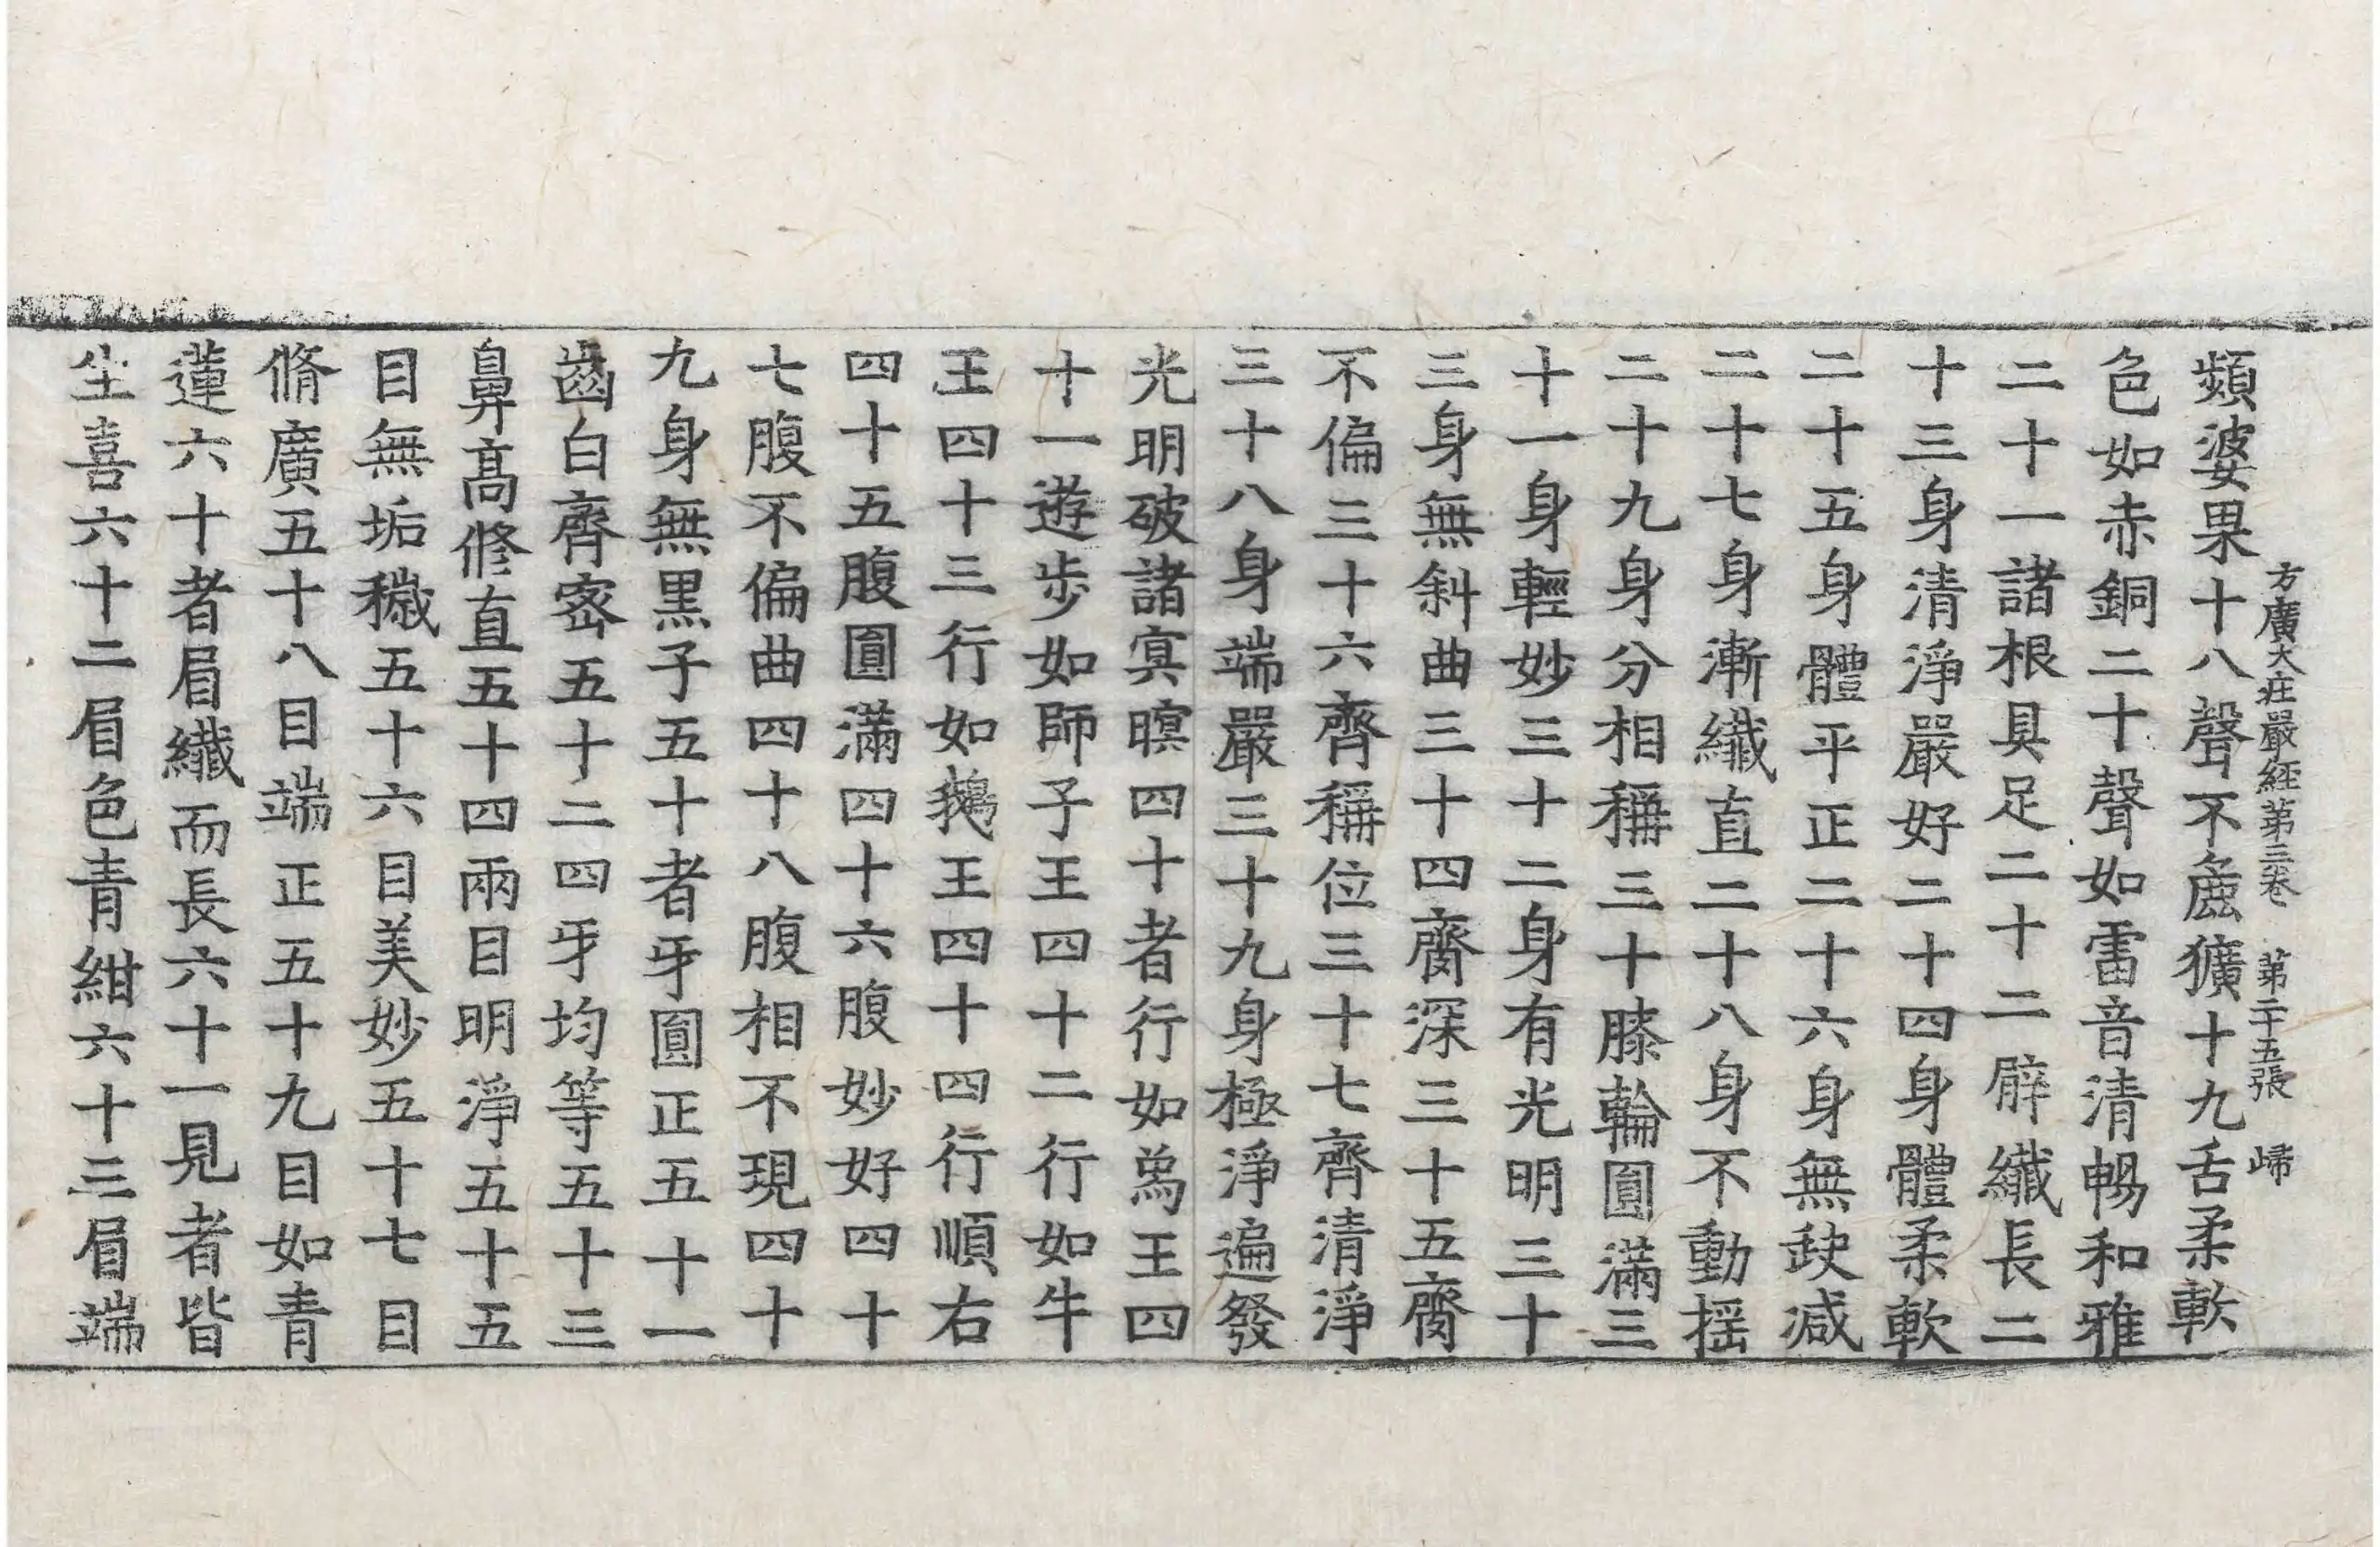 方廣大莊嚴經第三卷 第二十五張 歸
頻婆果十八聲不麁獷十九舌柔軟
色如赤銅二十聲如雷音清暢和雅
二十一諸根具足二十二臂纖長二
十三身清淨嚴好二十四身體柔軟
二十五身體平正二十六身無缺減
二十七身漸纖直二十八身不動搖
二十九身分相稱三十膝輪圓滿三
十一身輕妙三十二身有光明三十
三身無斜曲三十四齎深三十五齎
不偏三十六齊稱位三十七齊清淨
三十八身端嚴三十九身極淨遍發
光明破諸冥暝四十者行如象王四
十一遊步如師子王四十二行如牛
王四十三行如鵝王四十四行順右
四十五腹圓滿四十六腹妙好四十
七腹不偏曲四十八腹相不現四十
九身無黑子五十者牙圓正五十一
齒白齊密五十二四牙均等五十三
鼻高修直五十四兩目明淨五十五
目無垢穢五十六目美妙五十七目
脩廣五十八目端正五十九目如青
蓮六十者眉纖而長六十一見者皆
生喜六十二眉色青紺六十三眉端